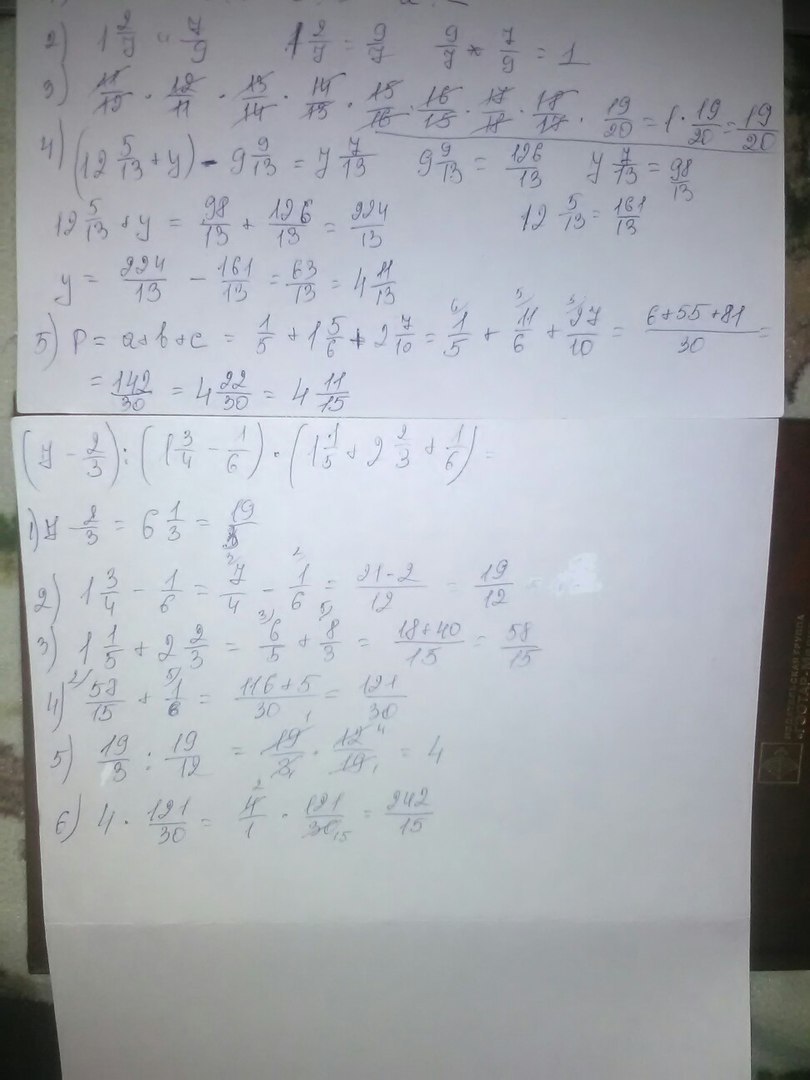 2) 1 2/7 и 7/9   1 2/7 = 9/7   9/7 * 7/9 = 1
3) 11/12 · 12/11 · 13/14 · 14/13 · 15/16 · 16/15 · 17/18 · 18/17 · 19/20 = 1 · 19/20 = 19/20
4) (12 5/13 + y) - 9 9/13 = 7 7/13   9 9/13 = 126/13   7 7/13 = 98/13
12 5/13 + y = 98/13 + 126/13 = 224/13   12 5/13 = 161/13
y = 224/13 - 161/13 = 63/13 = 4 11/13
5) P = a+b+c = 1/5 + 1 5/6 + 2 7/10 = 6/ 1/5 + 5/ 11/6 + 3/ 27/10 = 6+55+81/30 =
= 142/30 = 4 22/30 = 4 11/15
(7 - 2/3) : (1 3/4 - 1/6) · (1 1/5 + 2 2/3 + 1/6) =
1) 7 - 2/3 = 6 1/3 = 19/3
2) 1 3/4 - 1/6 = 3/ 7/4 - 2/ 1/6 = 21-2/12 = 19/12
3) 1 1/5 + 2 2/3 = 3/ 6/5 + 5/ 8/3 = 18+40/15 = 58/15
4) 2/ 58/15 + 5/ 1/6 = 116+5/30 = 121/30
5) 19/3 : 19/12 = 19/3 · 12/19 = 4
6) 4 · 121/30 = 4/1 · 121/30 = 242/15